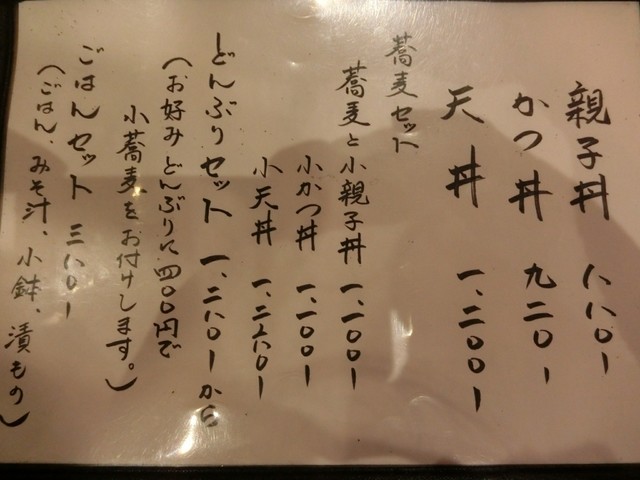 親子丼 八八〇ー
かつ丼 九二〇ー
天丼 一、二〇〇ー
蕎麦セット
蕎麦と小親子丼 一、一〇〇ー
小かつ丼 一、一〇〇ー
小天丼 一、二八〇ー
どんぶりセット 一、二八〇ーから
(お好みどんぶりに四〇〇円で
小蕎麦をお付けします。)
ごはんセット 三八〇ー
(ごはん、みそ汁、小鉢、漬もの)